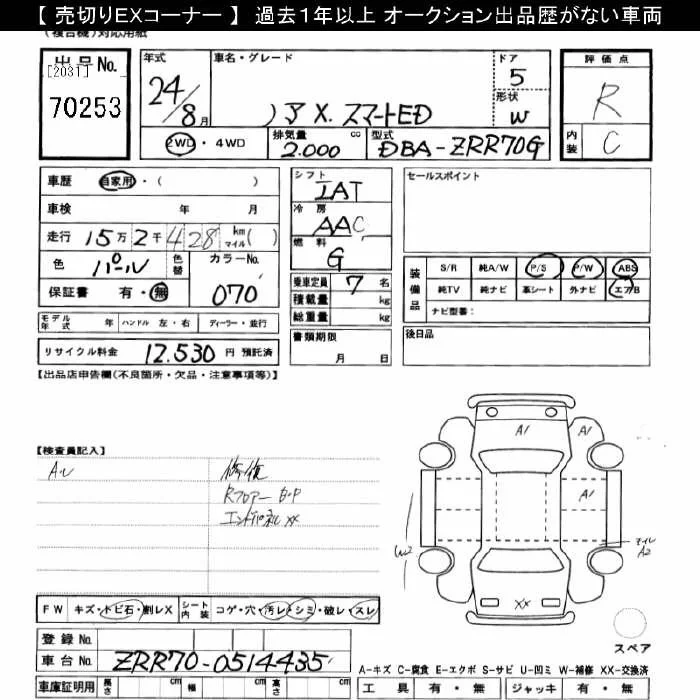 【 売切りEXコーナー 】 過去１年以上 オークション出品歴がない車両
(複合機)対応用紙
出品No.
[2031]
70253
年式
24/8月
車名・グレード
ノア X. スマートED
ドア
5
形状
W
評価点
R
内装
C
2WD・4WD
排気量
2.000 cc
型式
DBA-ZRR70G
車歴 自家用・( )
車検 年 月
走行 15万2千428 km マイル( )
色 パール 色替 カラーNo.
保証書 有・無 070
モデル年式 年 ハンドル 左・右 ディーラー・並行
リサイクル料金 12.530 円 預託済
シフト
IAT
冷房
AAC
燃料
G
乗車定員 7 名
積載量 kg
総重量 kg
書類期限
月 日
セールスポイント
装備品
S/R 純A/W P/S P/W ABS
純TV 純ナビ 革シート 外ナビ エアB
ナビ型番：
後日品
【出品店申告欄(不良箇所・欠品・注意事項等)】
【検査員記入】
修復
Rフロアー
エンドパネル XX
A1
A1
A1
W2
A2
XX
スペア
FW キズ・トビ石・割レX シート内装 コゲ・穴・汚レ・シミ・破レ・スレ
登録No.
車台No. ZRR70-0514435
車庫証明用 長さ cm 幅 cm 高さ cm
A-キズ C-腐食 E-エクボ S-サビ U-凹ミ W-補修 XX-交換済
工具 有・無 ジャッキ 有・無